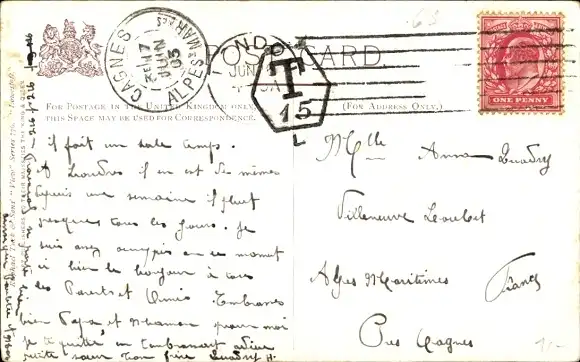 63
CAGNES
2E 17
JUIN
03
ALPES MARmes
LONDO
JUN
T
15
L
POST CARD.
ONE PENNY
FOR POSTAGE IN THE UNITED KINGDOM ONLY,
THIS SPACE MAY BE USED FOR CORRESPONDENCE.
(FOR ADDRESS ONLY.)
il fait un sale temps.
A Londres il en est de même
depuis une semaine il pleut
presque tous les jours. Je
suis assez occupé en ce moment
bien le bonjour à tous
les Parents et Amis Embrasse
bien Papa et Maman pour moi
Je te quitte en t'embrassant adieu
petite soeur ton frère Audry H.
Mlle Anna Audry
Villeneuve Loubet
Alpes Maritimes
France
Par Cagnes